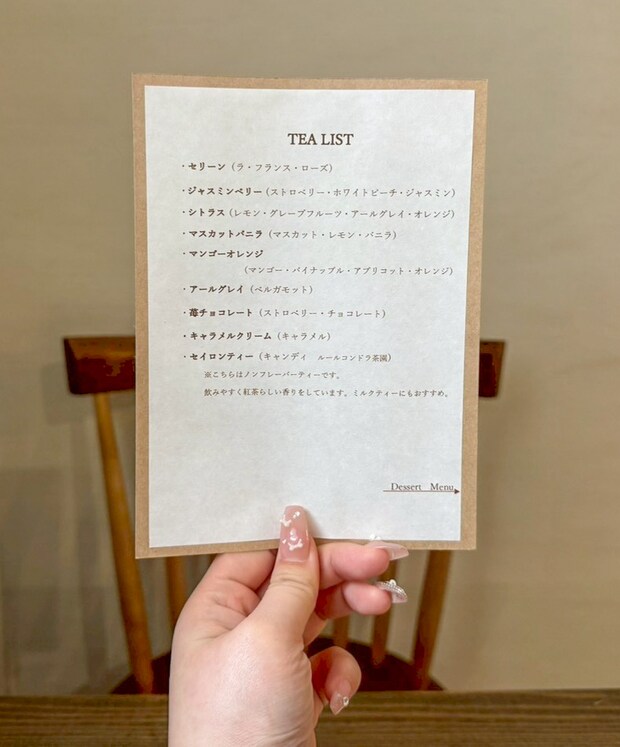 TEA LIST
・セリーン（ラ・フランス・ローズ）
・ジャスミンベリー（ストロベリー・ホワイトピーチ・ジャスミン）
・シトラス（レモン・グレープフルーツ・アールグレイ・オレンジ）
・マスカットバニラ（マスカット・レモン・バニラ）
・マンゴーオレンジ
（マンゴー・パイナップル・アプリコット・オレンジ）
・アールグレイ（ベルガモット）
・苺チョコレート（ストロベリー・チョコレート）
・キャラメルクリーム（キャラメル）
・セイロンティー（キャンディ　ルールコンドラ茶園）
※こちらはノンフレーバーティーです。
飲みやすく紅茶らしい香りをしています。ミルクティーにもおすすめ。
Dessert Menu